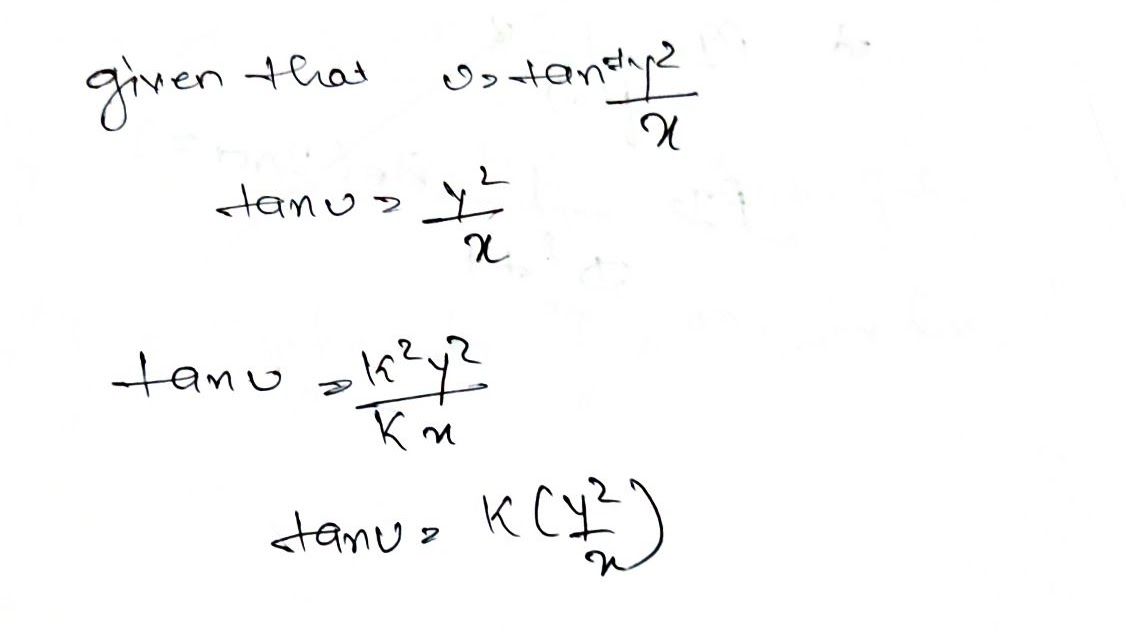 given that υ = tan⁻¹ y²/x
tan υ = y²/x
tan υ = K²y²/Kx
tan υ = K(y²/x)